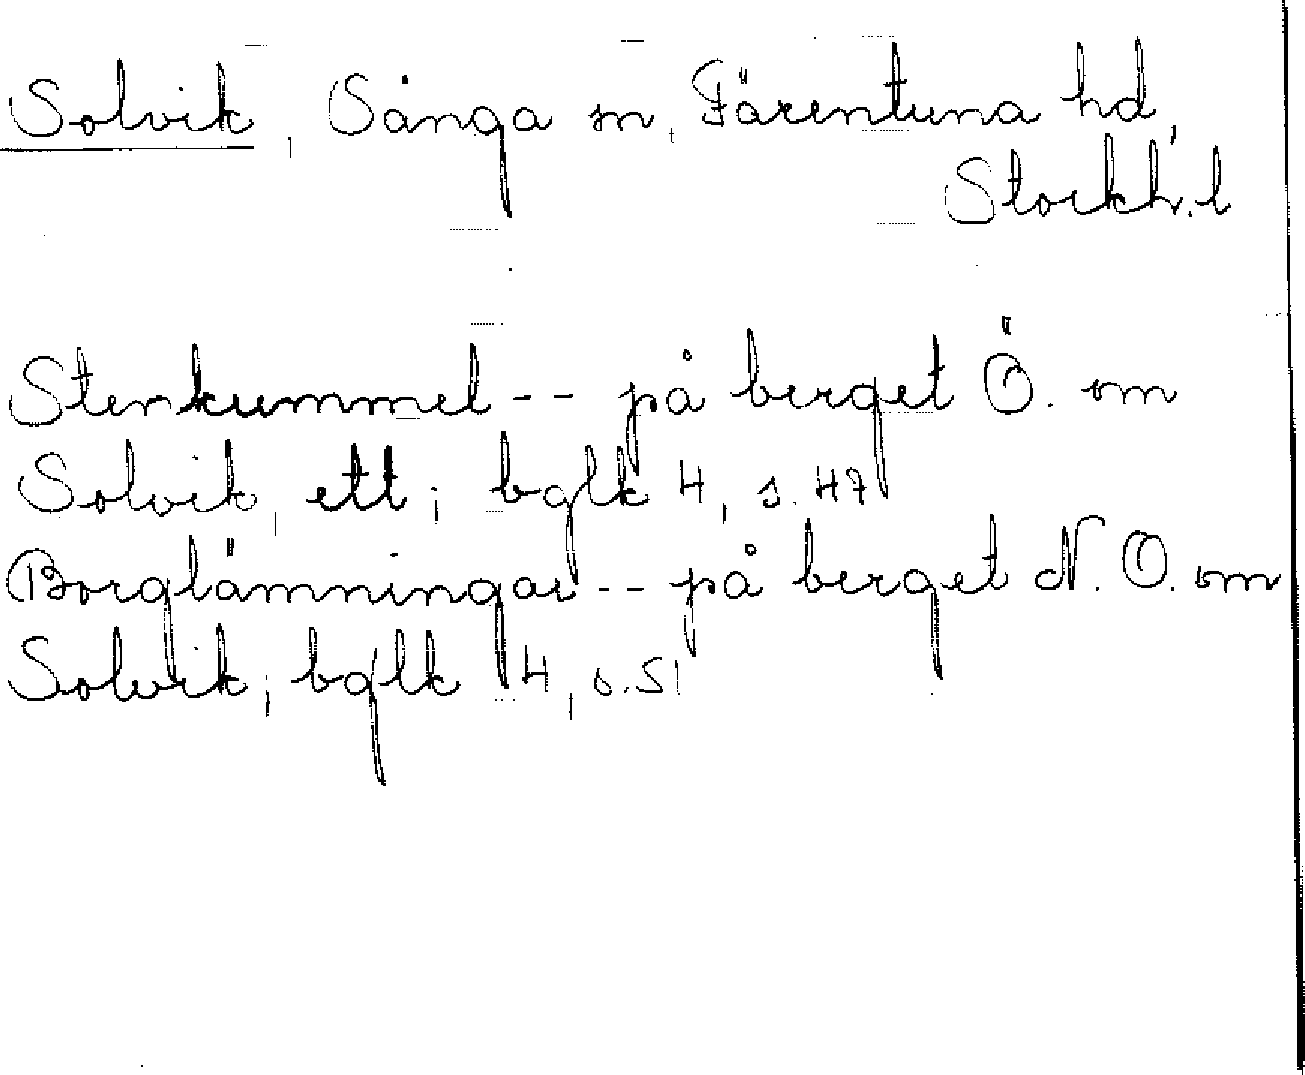 Solvik, Sånga sn, Färentuna hd,
Stockh. l
Stenkummel -- på berget Ö. om
Solvik, ett; bglk 4, s. 47
Borglämningar -- på berget N. O. om
Solvik; bglk 4, s. 51